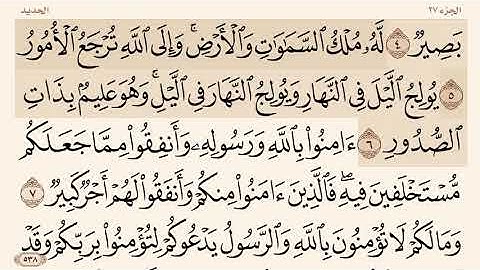 الجزء ٢٧ الحديد
بَصِيرٌ ٤ لَّهُۥ مُلْكُ ٱلسَّمَٰوَٰتِ وَٱلْأَرْضِ ۚ وَإِلَى ٱللَّهِ تُرْجَعُ ٱلْأُمُورُ
٥ يُولِجُ ٱلَّيْلَ فِى ٱلنَّهَارِ وَيُولِجُ ٱلنَّهَارَ فِى ٱلَّيْلِ ۚ وَهُوَ عَلِيمٌۢ بِذَاتِ
ٱلصُّدُورِ ٦ ءَامِنُوا۟ بِٱللَّهِ وَرَسُولِهِۦ وَأَنفِقُوا۟ مِمَّا جَعَلَكُم
مُّسْتَخْلَفِينَ فِيهِ ۖ فَٱلَّذِينَ ءَامَنُوا۟ مِنكُمْ وَأَنفَقُوا۟ لَهُمْ أَجْرٌ كَبِيرٌ ٧
وَمَا لَكُمْ لَا تُؤْمِنُونَ بِٱللَّهِ ۙ وَٱلرَّسُولُ يَدْعُوكُمْ لِتُؤْمِنُوا۟ بِرَبِّكُمْ وَقَدْ
٥٣٨